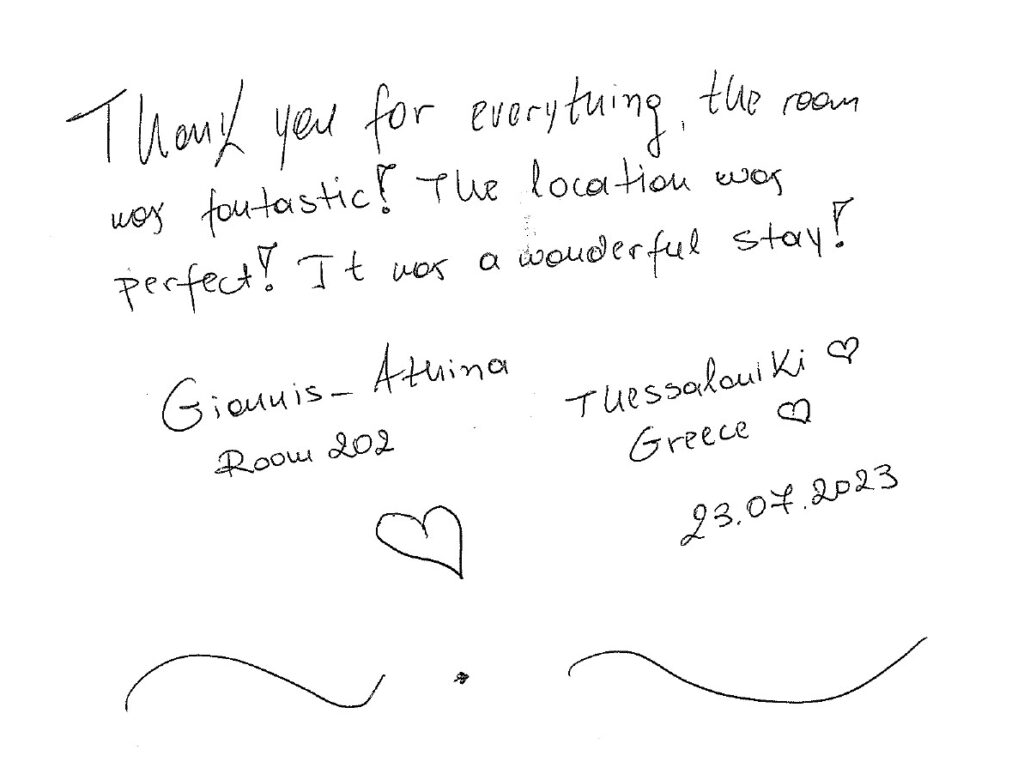 Thank you for everything, the room
was fantastic! The location was
perfect! It was a wonderful stay!
Giannis - Athina
Room 202
Thessaloniki ♡
Greece ♡
23.07.2023